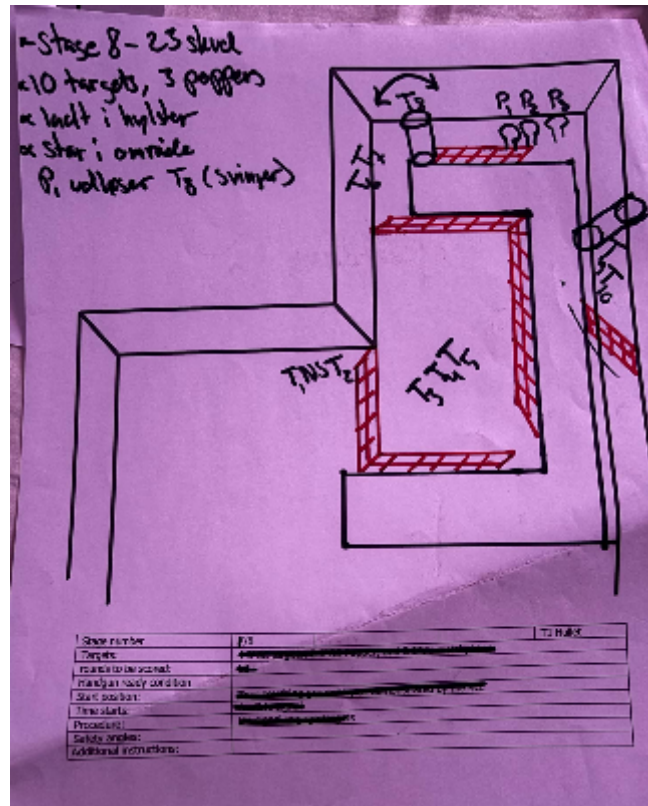 Stage 8 - 23 skud
10 targets, 3 poppers
ladt i hylster
Start i område
P1 udløser T8 (svinger)
T8
P1 P2 P3
T7
T6
T9
T10
T1 NS T2
T3 T4 T5
Stage number
Targets:
rounds to be scored:
Handgun ready condition
Start position:
Time starts:
Procedure:
Safety angles:
Additional instructions: